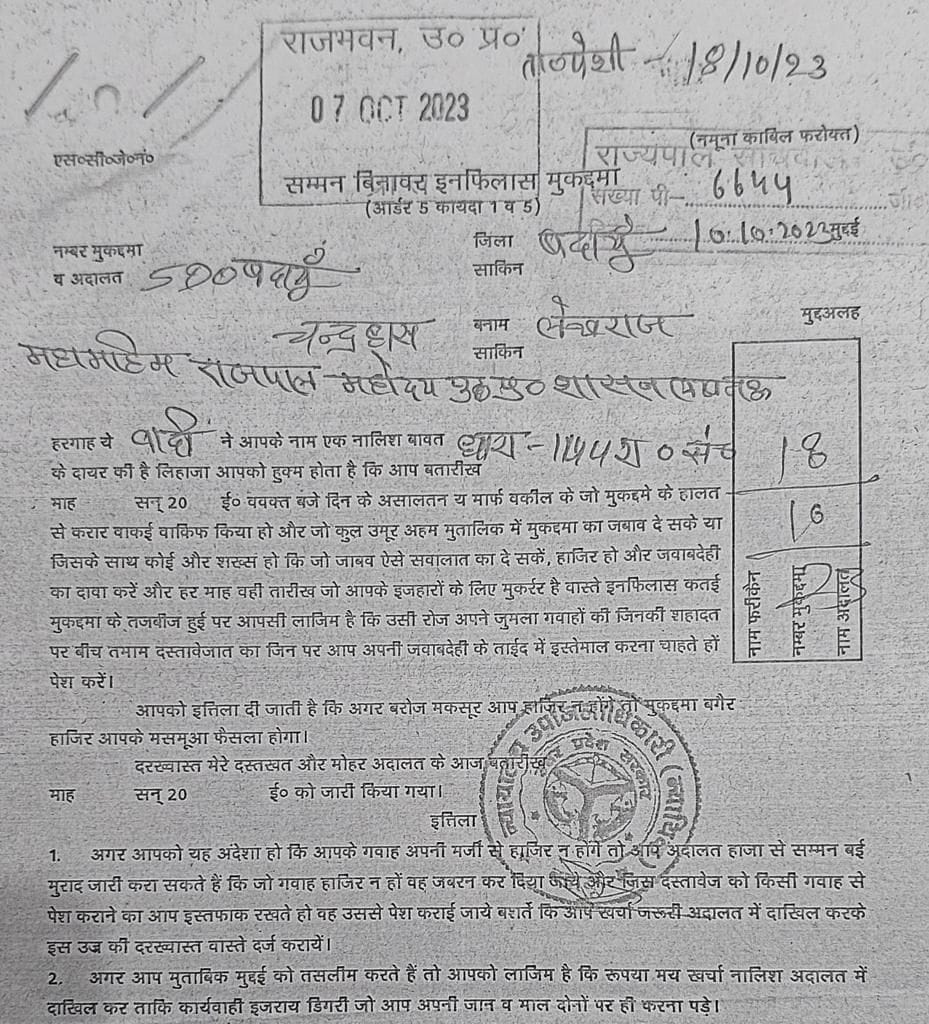 राजभवन, उ० प्र०
ता०पेशी - 18/10/23
07 OCT 2023
(नमूना काबिल फरोक्त)
एस०सी०जे०नं०
राज्यपाल
सम्मन बिनावर इनफिलास मुकद्दमा
संख्या पी- 6644
(आर्डर 5 कायदा 1 व 5)
नम्बर मुकद्दमा
जिला बदायूँ 10.10.2023 मुद्दई
व अदालत SDO बदायूँ
साकिन
चन्द्रहास बनाम लेखराज मुद्दअलह
साकिन
महामहिम राजपाल महोदय शासन लखनऊ
हरगाह ये वादी ने आपके नाम एक नालिश बावत धारा-144 रा० सं०
के दायर की है लिहाजा आपको हुक्म होता है कि आप बतारीख
माह सन् 20 ई० ववक्त बजे दिन के असालतन य मार्फ वकील के जो मुकद्दमे के हालत
से करार वाकई वाकिफ किया हो और जो कुल उमूर अहम मुतालिक में मुकद्दमा का जबाव दे सके या
जिसके साथ कोई और शख्स हो कि जो जाबव ऐसे सवालात का दे सकें, हाजिर हो और जवाबदेही
का दावा करें और हर माह वही तारीख जो आपके इजहारों के लिए मुकर्रर है वास्ते इनफिलास कतई
मुकद्दमा के तजबीज हुई पर आपसी लाजिम है कि उसी रोज अपने जुमला गवाहों की जिनकी शहादत
पर बीच तमाम दस्तावेजात का जिन पर आप अपनी जवाबदेही के ताईद में इस्तेमाल करना चाहते हों
पेश करें।
18
10
नाम फरीकेन
नम्बर मुकद्दमा
नाम अदालत
आपको इत्तिला दी जाती है कि अगर बरोज मकसूर आप हाजिर न होंगे तो मुकद्दमा बगैर
हाजिर आपके मसमूआ फैसला होगा।
दरख्वास्त मेरे दस्तखत और मोहर अदालत के आज बतारीख
माह सन् 20 ई० को जारी किया गया।
न्यायालय उपजिलाधिकारी (न्यायिक)
उत्तर प्रदेश सरकार
इत्तिला
1. अगर आपको यह अंदेशा हो कि आपके गवाह अपनी मर्जी से हाजिर न होंगे तो आप अदालत हाजा से सम्मन बई
मुराद जारी करा सकते हैं कि जो गवाह हाजिर न हों वह जबरन कर दिया जाये और जिस दस्तावेज को किसी गवाह से
पेश कराने का आप इस्तफाक रखते हो वह उससे पेश कराई जाये बशर्ते कि आप खर्चा जरूरी अदालत में दाखिल करके
इस उज्र की दरख्वास्त वास्ते दर्ज करायें।
2. अगर आप मुताबिक मुद्दई को तसलीम करते हैं तो आपको लाजिम है कि रूपया मय खर्चा नालिश अदालत में
दाखिल कर ताकि कार्यवाही इजराय डिगरी जो आप अपनी जान व माल दोनों पर ही करना पड़े।